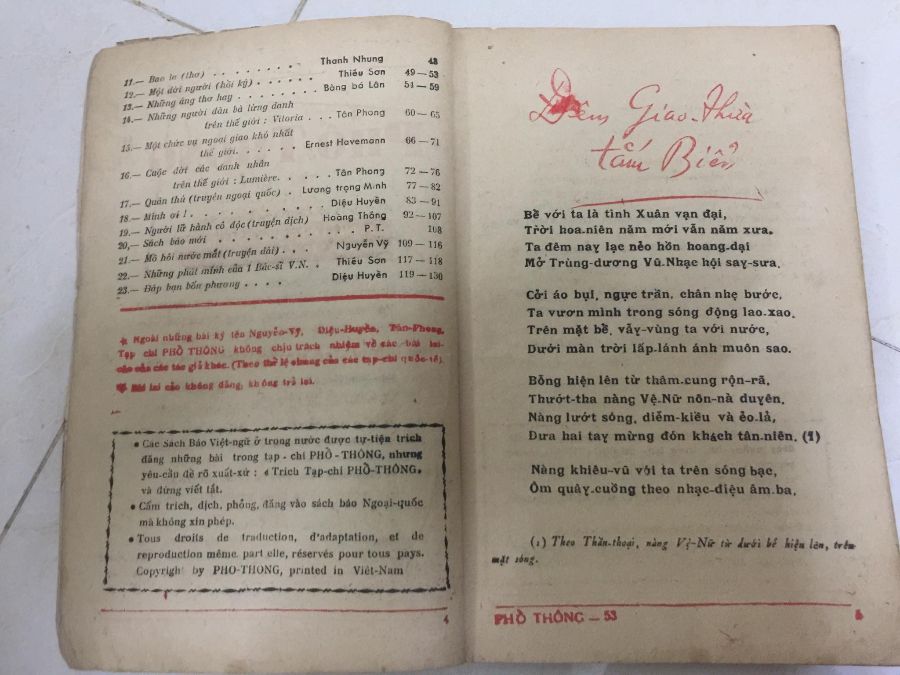 11.— Bao la (thơ) . . . . . . . . Thanh Nhung 48
12.— Một đời người (hồi ký) . . . . . . Thiếu Sơn 49 — 53
13.— Những áng thơ hay . . . . . . . Bàng bá Lân 54 — 59
14.— Những người đàn bà lừng danh
trên thế giới : Vitoria . . . Tân Phong 60 — 65
15.— Một chức vụ ngoại giao khó nhất
thế giới. . . . . . Ernest Havemann 66 — 71
16.— Cuộc đời các danh nhân
trên thế giới : Lumière. . . . Tân Phong 72 — 76
17.— Quân thù (truyện ngoại quốc) . Lương trọng Minh 77 — 82
18.— Mình ơi ! . . . . . . . . Diệu Huyền 83 — 91
19.— Người lữ hành cô độc (truyện dịch) Hoàng Thắng 92 — 107
20,— Sách báo mới . . . . . . . P. T. 108
21.— Mồ hôi nước mắt (truyện dài) . . . Nguyễn Vỹ 109 — 116
22.— Những phát minh của 1 Bác-sĩ V.N. . Thiếu Sơn 117 — 118
23.— Đáp bạn bốn phương . . . . Diệu Huyền 119 — 130
Ngoài những bài ký tên Nguyễn-Vỹ, Diệu-Huyền, Tân-Phong,
Tạp chí PHỔ THÔNG không chịu trách nhiệm về các bài lai-
cảo của các tác giả khác. (Theo thể lệ chung của các tạp-chí quốc-tế).
Bài lai cảo không đăng, không trả lại.
• Các Sách Báo Việt-ngữ ở trong nước được tự-tiện trích
đăng những bài trong tạp - chí PHỔ-THÔNG, nhưng
yêu-cầu đề rõ xuất-xứ : « Trích Tạp-chí PHỔ-THÔNG»
và đừng viết tắt.
• Cấm trích, dịch, phỏng, đăng vào sách báo Ngoại-quốc
mà không xin phép.
• Tous droits de traduction, d'adaptation, et de
reproduction même part elle, réservés pour tous pays.
Copyright by PHO-THONG, printed in Viêt-Nam
4
Đêm Giao-thừa
tắm Biển
Bể với ta là tình Xuân vạn đại,
Trời hoa-niên năm mới vẫn năm xưa.
Ta đêm nay lạc nẻo hồn hoang-dại
Mở Trùng-dương Vũ-Nhạc hội say-sưa.
Cởi áo bụi, ngực trần, chân nhẹ bước,
Ta vươn mình trong sóng động lao-xao.
Trên mặt bể, vẫy-vùng ta với nước,
Dưới màn trời lấp-lánh ánh muôn sao.
Bỗng hiện lên từ thâm-cung rộn-rã,
Thướt-tha nàng Vệ-Nữ nõn-nà duyên.
Nàng lướt sóng, diễm-kiều và ẻo-lả,
Đưa hai tay mừng đón khách tân-niên. (1)
Nàng khiêu-vũ với ta trên sóng bạc,
Ôm quây-cuồng theo nhạc-điệu âm-ba.
(1) Theo Thần-thoại, nàng Vệ-Nữ từ dưới bể hiện lên, trên
mặt sóng.
PHỔ THÔNG — 53
5